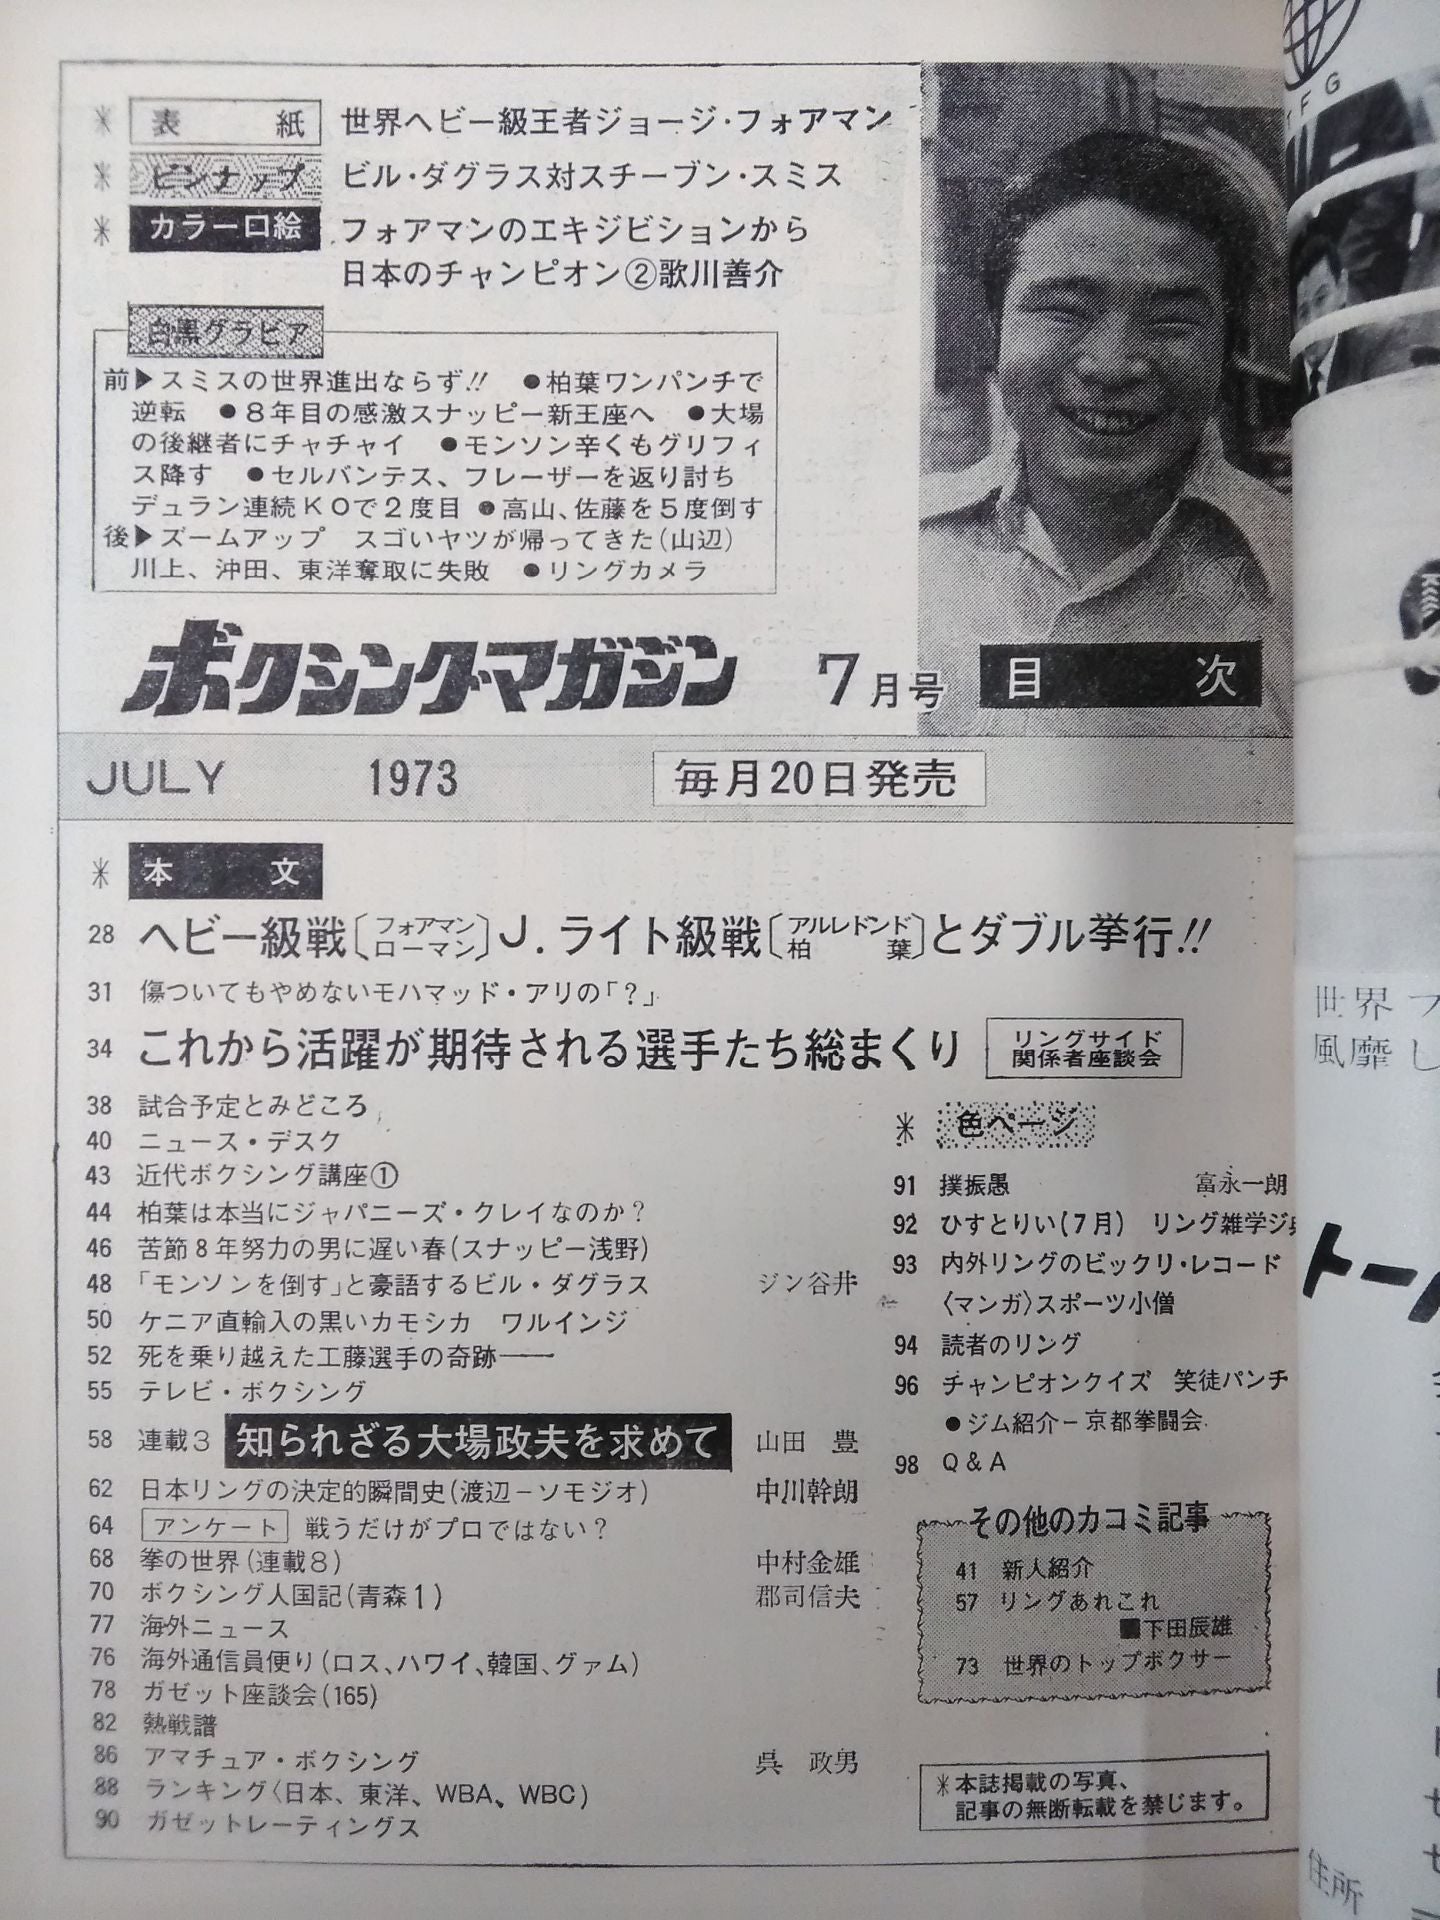 表　紙　世界ヘビー級王者ジョージ・フォアマン
ピンナップ　ビル・ダグラス対スチーブン・スミス
カラー口絵　フォアマンのエキジビションから
日本のチャンピオン②歌川善介
白黒グラビア
前▶スミスの世界進出ならず!!　●柏葉ワンパンチで
逆転　●8年目の感激スナッピー新王座へ　●大場
の後継者にチャチャイ　●モンソン辛くもグリフィ
ス降す　●セルバンテス、フレーザーを返り討ち
デュラン連続KOで2度目　●高山、佐藤を5度倒す
後▶ズームアップ　スゴいヤツが帰ってきた(山辺)
川上、沖田、東洋奪取に失敗　●リングカメラ
ボクシング・マガジン　7月号　目　次
JULY　1973　毎月20日発売
＊本　文
28　ヘビー級戦〔フォアマン ローマン〕J.ライト級戦〔アルレドンド 柏葉〕とダブル挙行!!
31　傷ついてもやめないモハマッド・アリの「？」
34　これから活躍が期待される選手たち総まくり　リングサイド関係者座談会
38　試合予定とみどころ
40　ニュース・デスク
43　近代ボクシング講座①
44　柏葉は本当にジャパニーズ・クレイなのか？
46　苦節8年努力の男に遅い春(スナッピー浅野)
48　「モンソンを倒す」と豪語するビル・ダグラス　ジン谷井
50　ケニア直輸入の黒いカモシカ　ワルインジ
52　死を乗り越えた工藤選手の奇跡——
55　テレビ・ボクシング
58　連載3　知られざる大場政夫を求めて　山田　豊
62　日本リングの決定的瞬間史(渡辺－ソモジオ)　中川幹朗
64　アンケート　戦うだけがプロではない？
68　拳の世界(連載8)　中村金雄
70　ボクシング人国記(青森1)　郡司信夫
77　海外ニュース
76　海外通信員便り(ロス、ハワイ、韓国、グァム)
78　ガゼット座談会(165)
82　熱戦譜
86　アマチュア・ボクシング　呉　政男
88　ランキング〈日本、東洋、WBA、WBC)
90　ガゼットレーティングス
＊色ページ
91　撲振愚　富永一朗
92　ひすとりい(7月)　リング雑学ジ
93　内外リングのビックリ・レコード
〈マンガ〉スポーツ小僧
94　読者のリング
96　チャンピオンクイズ　笑徒パンチ
●ジム紹介－京都拳闘会
98　Q＆A
その他のカコミ記事
41　新人紹介
57　リングあれこれ
■下田辰雄
73　世界のトップボクサー
＊本誌掲載の写真、
記事の無断転載を禁じます。
FG
世界
風靡し
トー
住所